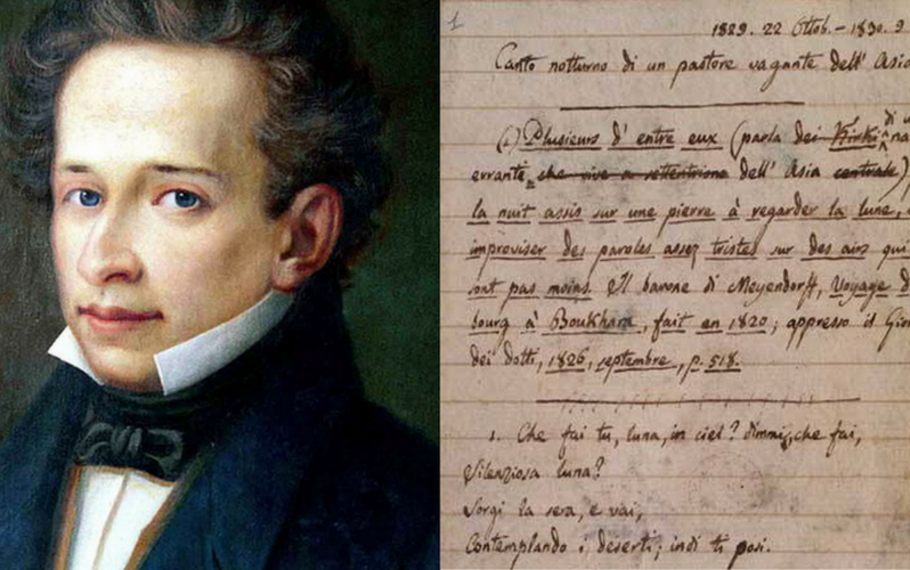 1
1829. 22 Ottob. – 1830. 9
Canto notturno di un pastore vagante dell' Asia
(1) Plusieurs d' entre eux (parla dei Kirki di una na
errante, che vive a settentrione dell' Asia centrale)
la nuit assis sur une pierre à regarder la lune, e
improviser des paroles assez tristes sur des airs qui
sont pas moins. Il barone di Meyendorff, Voyage d
bourg à Boukhara, fait en 1820; appresso il Gior
dei dotti, 1826, septembre, p. 518.
1. Che fai tu, luna, in ciel? dimmi, che fai,
Silenziosa luna?
Sorgi la sera, e vai,
Contemplando i deserti; indi ti posi.